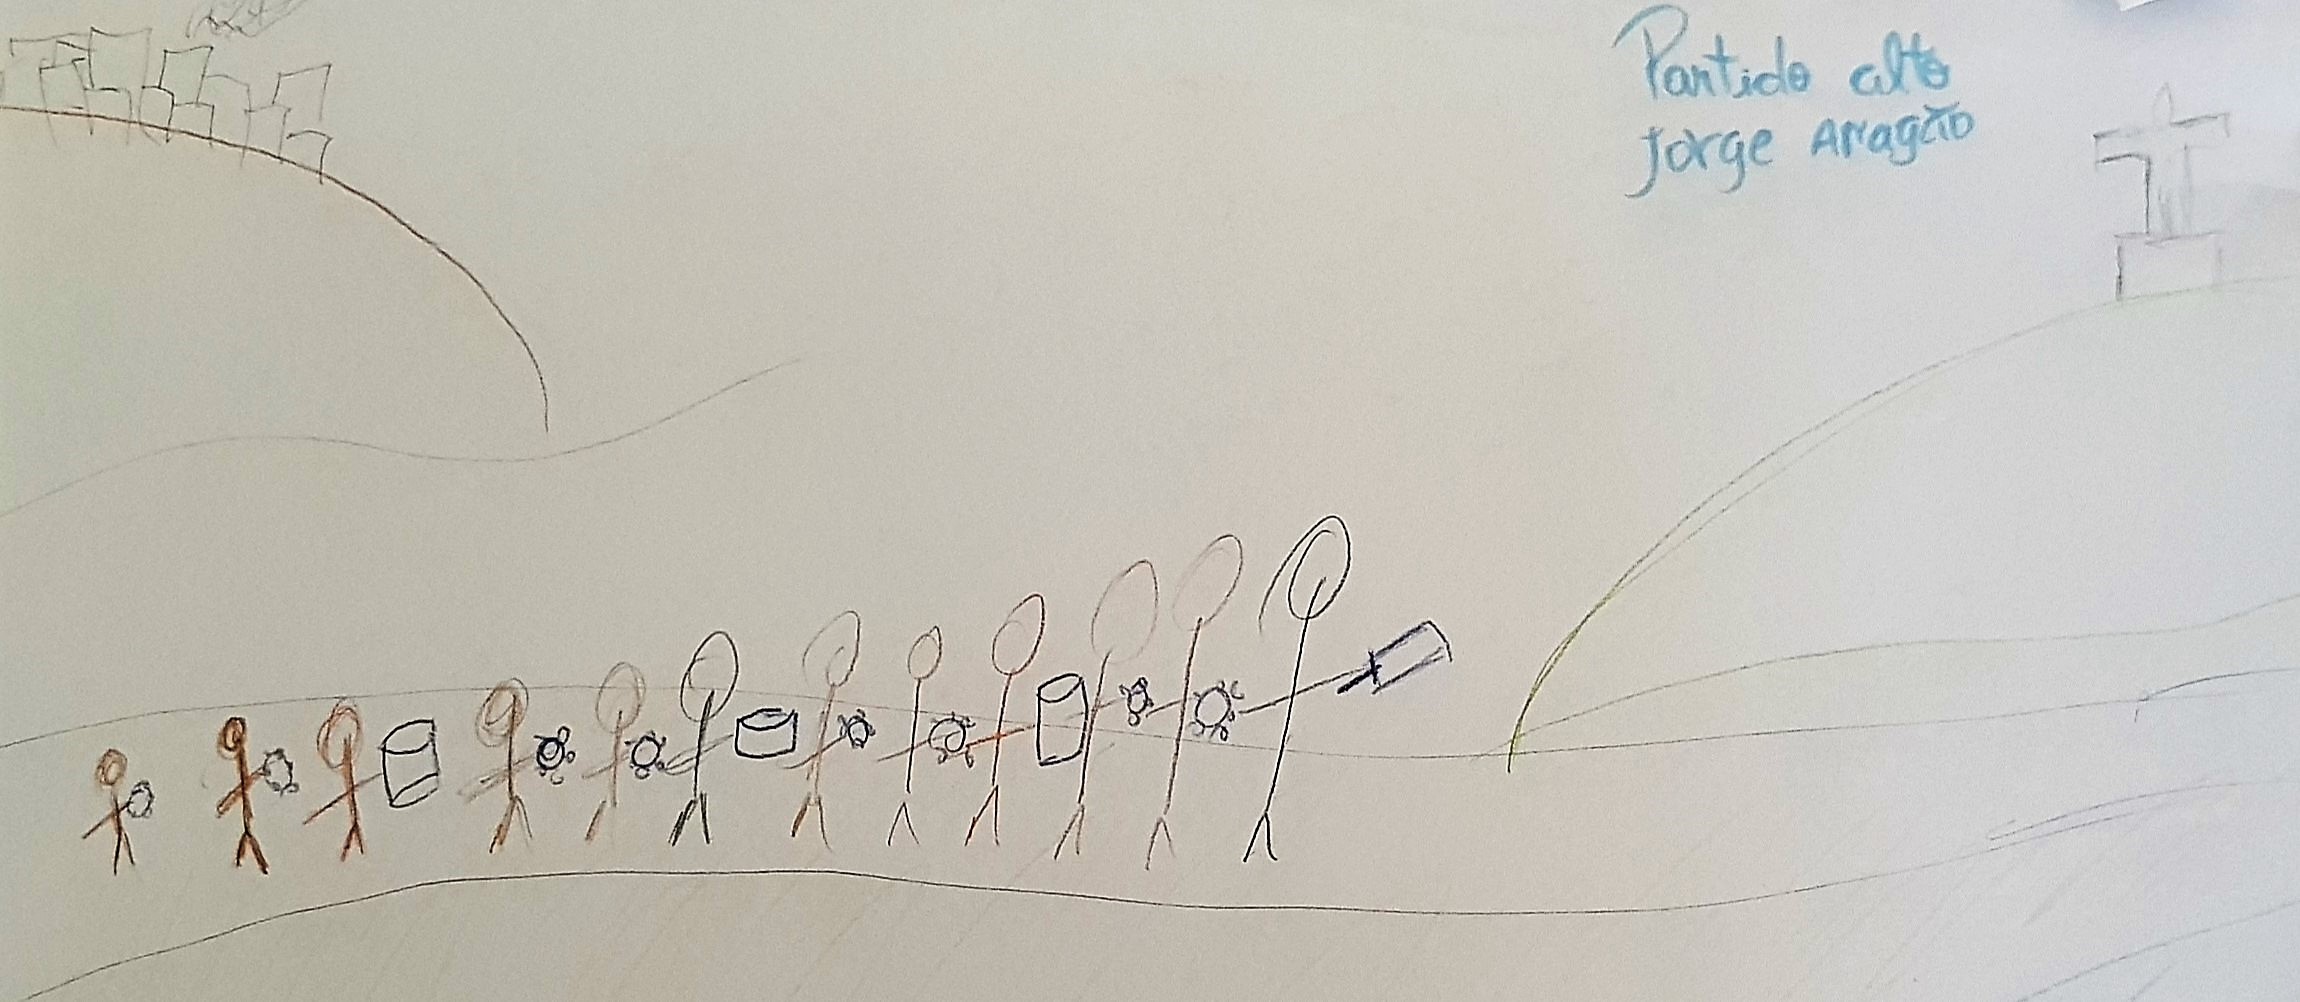 Partido alto
Jorge Aragão